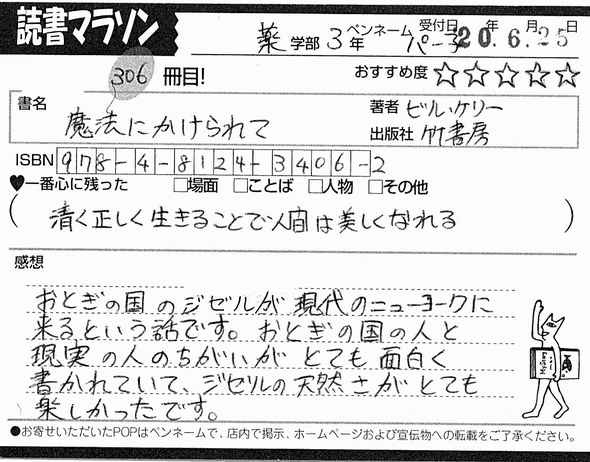 読書マラソン
薬 学部 3 年 ペンネーム パーコ 受付日 20.年6.月25日
306 冊目! おすすめ度 ☆☆☆☆☆
書名 魔法にかけられて 著者 ビル・ケリー
出版社 竹書房
ISBN 978-4-8124-3406-2
♥一番心に残った □場面 □ことば □人物 □その他
( 清く正しく生きることで人間は美しくなれる )
感想
おとぎの国のジゼルが現代のニューヨークに
来るという話です。おとぎの国の人と
現実の人のちがいがとても面白く
書かれていて、ジゼルの天然さがとても
楽しかったです。
●お寄せいただいたPOPはペンネームで、店内で掲示、ホームページおよび宣伝物への転載をご了承ください。